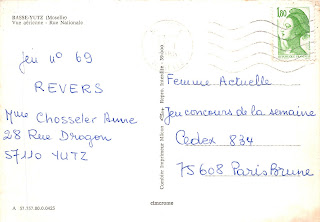 BASSE-YUTZ (Moselle)
Vue aérienne - Rue Nationale
jeu n° 69
REVERS
Mme Chosseler Anne
28 Rue Dragon
57110 YUTZ
A 57.757.00.0.0425
Combier Imprimeur Mâcon
cimcrome
1,80
Femme Actuelle
Jeu concours de la semaine
Cedex 834
75608 Paris Brune